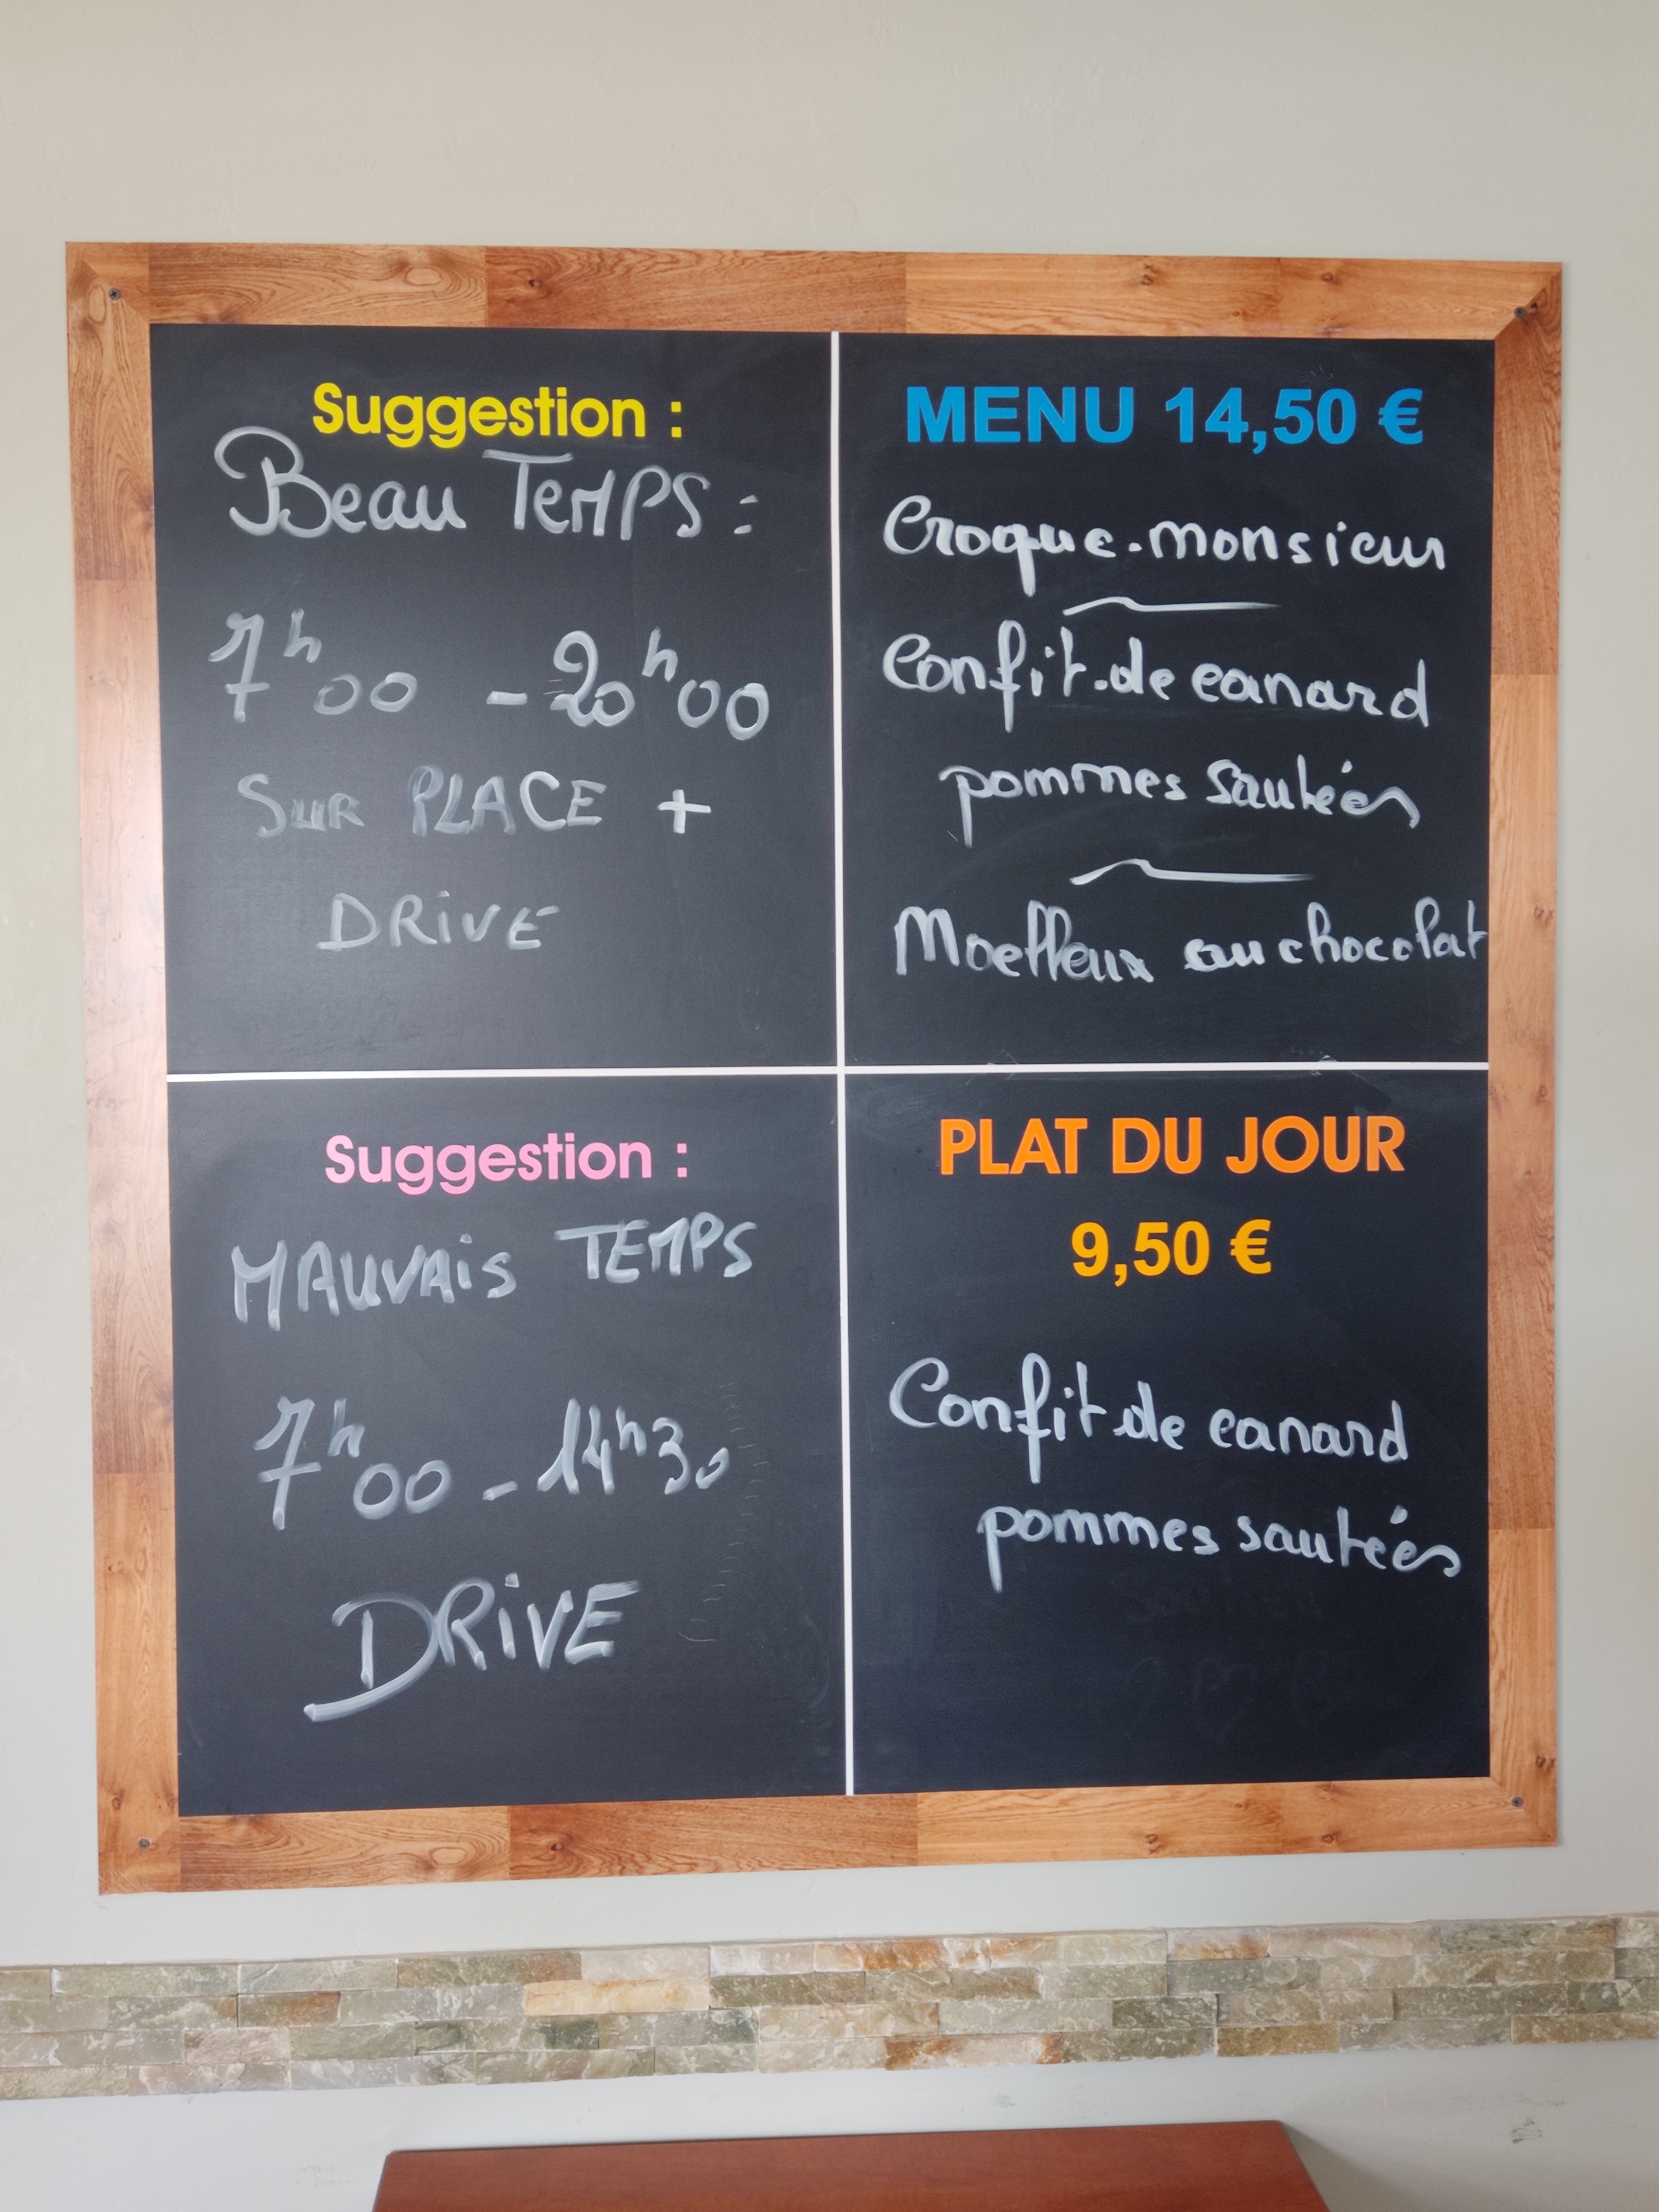 Suggestion :
Beau TEMPS :
7h00 - 20h00
SUR PLACE +
DRIVE
MENU 14,50 €
Croque-monsieur
Confit de canard
pommes sautées
Moelleux au chocolat
Suggestion :
MAUVAIS TEMPS
7h00 - 14h30
DRIVE
PLAT DU JOUR
9,50 €
Confit de canard
pommes sautées